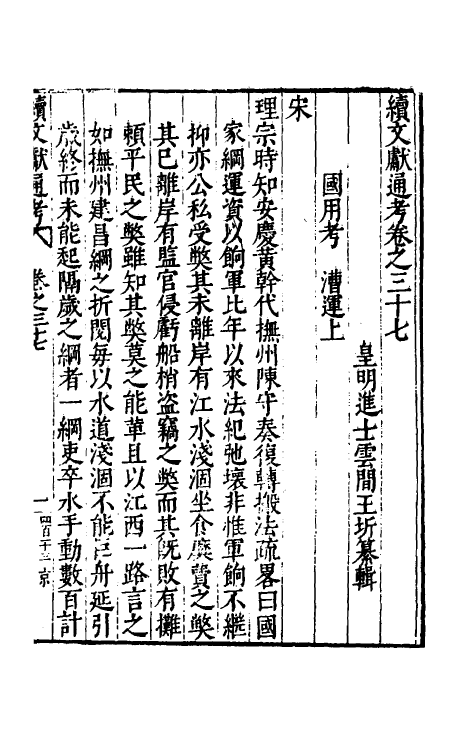 續文獻通考卷之三十七
皇明進士雲間王圻纂輯
國用考　漕運上
宋
理宗時知安慶黃幹代撫州陳守奏復轉搬法疏畧曰國
家綱運資以餉軍比年以來法紀弛壞非惟軍餉不繼
抑亦公私受獘其未離岸有江水淺涸坐食糜費之獘
其已離岸有監官侵虧船梢盗竊之獘而其旣敗有攤
頼平民之獘雖知其獘莫之能革且以江西一路言之
如撫州建昌綱之折閱每以水道淺涸不能巨舟延引
歲終而未能起隔歲之綱者一綱吏卒水手動數百計
續文獻通考　卷之三七　一